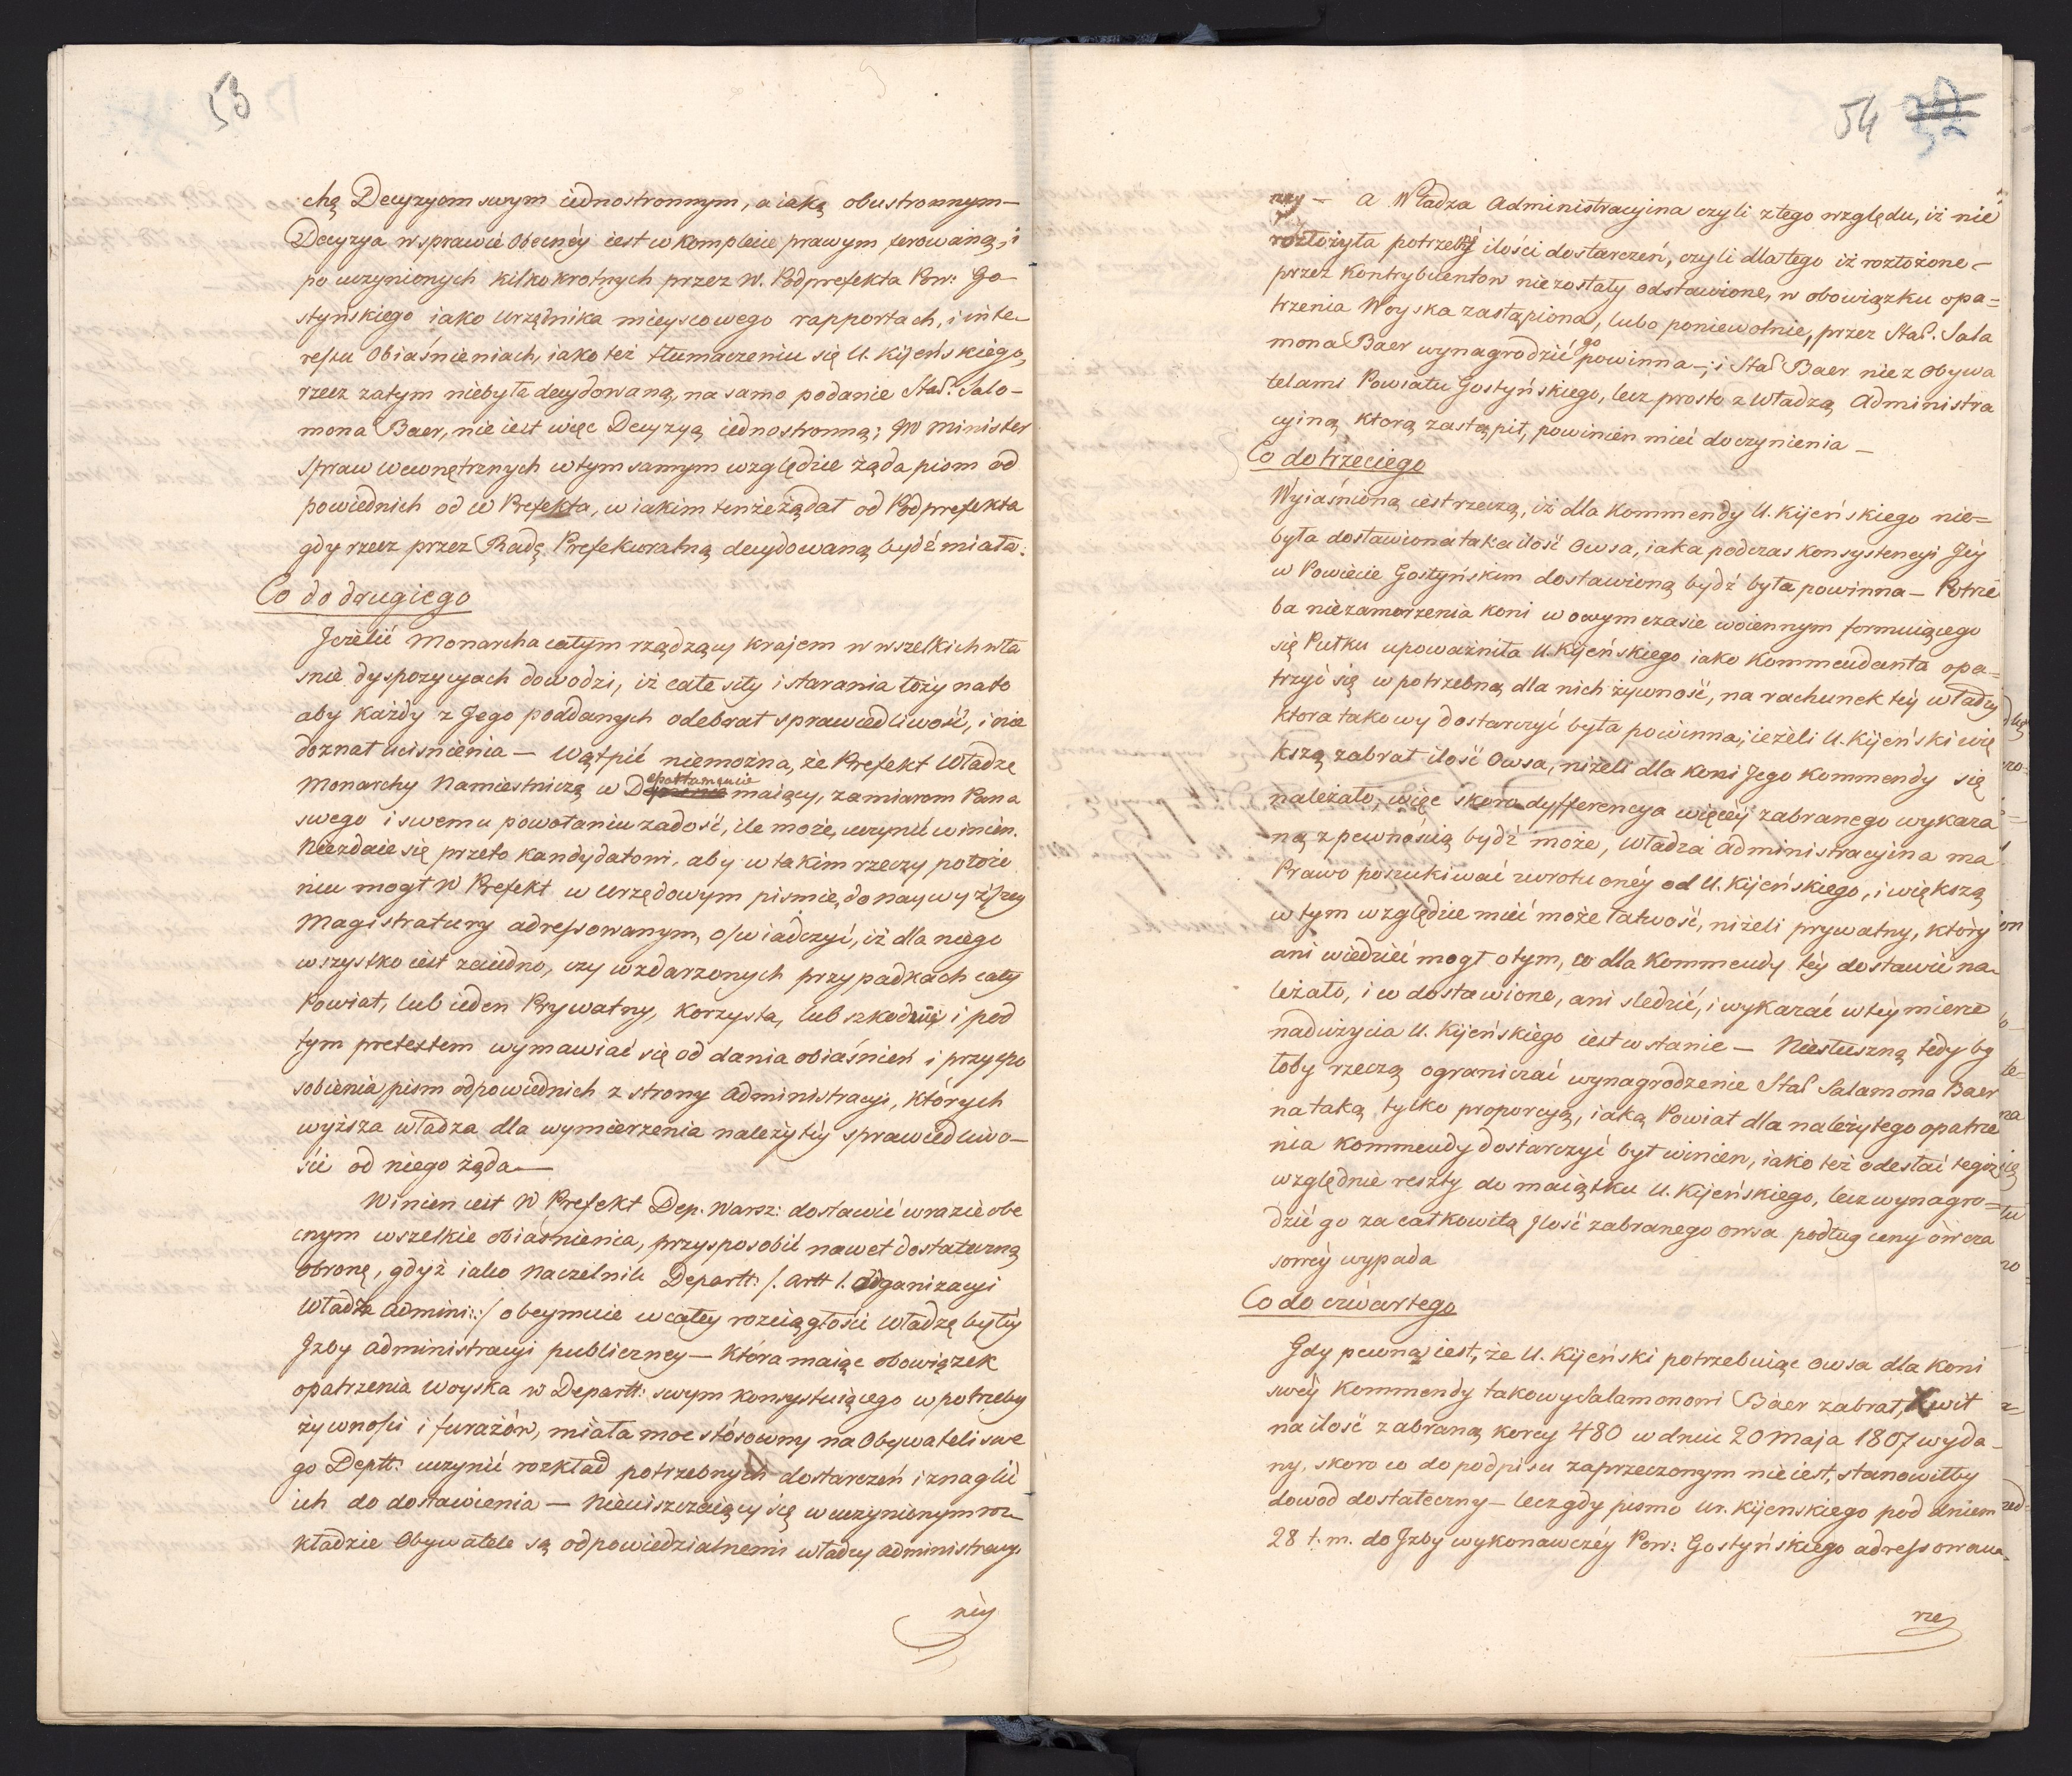 53
chą Decyzyom swym iednostronnym, a iaką obustronnym—
Decyzya w sprawie Obecnéy iest w komplecie prawym ferowaną, i
po uczynionych kilkokrotnych przez W. Podprefekta Pow: Go-
styńskiego iako Urzędnika mieyscowego rapportach, i inte-
ressu Obiaśnieniach, iako też tłumaczeniu się U. Kijeńskiego,
rzecz zatym niebyła decydowaną, na samo podanie Star: Salo-
mona Baer, nie iest więc Decyzyą iednostronną; JW Minister
Spraw wewnętrznych w tym samym względzie żąda pism od
powiednich od W Prefekta, w iakim tenże żądał od Podprefekta
gdy rzecz przez Radę Prefekturalną decydowaną bydź miała.
Co do drugiego
Jeżelić Monarcha całym rządzący krajem w wszelkich wła
snie dyspozycyach dowodzi, iż całe siły i starania łoży na to
aby każdy z Jego poddanych odebrał sprawiedliwość, i nie
doznał ucisnienia — Wątpić niemożna, że Prefekt Władzę
Monarchy Namiestniczą w Departamencie maiący, zamiarom Pana
swego i swemu powołaniu zadość, ile może, uczynić winien.
Niezdaie się przeto kandydatoni, aby w takim rzeczy położe
niu mogł W Prefekt w Urzędowym pismie, do naywyższey
Magistratury adressowanym, oswiadczyć, iż dla niego
wszystko iest zaiedno, czy w zdarzonych przypadkach cały
Powiat, lub ieden Prywatny, korzysta, lub szkoduie i pod
tym pretextem wymawiać się od dania obiaśnień i przyspo
sobienia pism odpowiednich z strony Administracyi, których
wyższa władza dla wymierzenia należytéy sprawiedliwo-
ści od niego żąda—
Winien iest W Prefekt Dep. Warsz: dostawić w razie obe
cnym wszelkie obiaśnienia, przysposobić nawet dostateczną
Obronę, gdyż iako Naczelnik Departt: /. Artt 1. Organizacyi
Władz Admini:/ obeymuie w całey rozciągłości Władzę byłéy
Jzby Administracyi publiczney — Która maiąc obowiązek
opatrzenia Woyska w Departt: swym konsystuiącego w potrzeby
żywności i furażów, miała moc stósowny na Obywateli swe
go Deptt: uczynić rozkład potrzebnych dostarczeń i znaglić
ich do dostawienia — Nieuiszczaiący się w uczynionym roz-
kładzie Obywatele są odpowiedzialnemi władzy administracyi
néy
54
néy — A Władza Administracyina czyli z tego względu, iż nie
rozłożyła potrzebnéy ilości dostarczeń, czyli dla tego iż rozłożone -
przez Kontrybuentow niezostały odstawione, w obowiązku opa=
trzenia Woyska zastąpiona, lubo poniewolnie, przez Star. Sala
mona Baer wynagrodzić go powinna —; i Star Baer nie z Obywa
telami Powiatu Gostyńskiego, lecz prosto z Władzą Administra
cyiną którą zastąpił, powinien mieć do czynienia —
Co do trzeciego
Wyiaśnioną iest rzeczą, iż dla Kommendy U. Kijeńskiego nie=
była dostawiona taka ilość Owsa, iaka podczas konsystencyi Jéy
w Powiecie Gostyńskim dostawioną bydź była powinna — Potrze
ba niezamorzenia koni w owym czasie woiennym formuiącego
się Pułku upoważniła U. Kijeńskiego iako Kommendanta opa=
trzyć się w potrzebną dla nich żywność, na rachunek téy władzy
która takowy dostarczyć była powinna; ieżeli U. Kijeński wię
kszą zabrał ilość Owsa, niżeli dla koni Jego Kommendy się
należało, więc skoro dyfferencya więcéy zabranego wykaza
ną z pewnością bydź może, Władza Administracyina ma
Prawo poszukiwać zwrotu onéy od U. Kijeńskiego, i większą
w tym względzie mieć może łatwość, niżeli prywatny, który
ani wiedzieć mogł o tym, co dla Kommendy téy dostawić na-
leżało, i co dostawione, ani sledzić, i wykazać w téy mierze
nadużycia U. Kijeńskiego iest w stanie — Niesłuszną tedy by
łoby rzeczą ograniczać wynagrodzenie Star Salamona Baer
na taką tylko proporcyą, iaką Powiat dla należytego opatrze
nia kommendy dostarczyć był winien, iako też odesłać tegoż
względnie reszty do maiątku U. Kijeńskiego, lecz wynagro=
dzić go za całkowitą Jlość zabranego owsa podług ceny ówcza
sowéy wypada
Co do czwartego
Gdy pewną iest, że U. Kijeński potrzebuiąc Owsa dla koni
swéy Kommendy takowy Salamonowi Baer zabrał, Kwit
na ilość zabraną korcy 480 w dniu 20 Maja 1807 wyda-
ny, skoro co do podpisu zaprzeczonym nie iest, stanowiłby
dowod dostateczny — lecz gdy pismo Ur. Kijenskiego pod dniem
28 t. m. do Jzby wykonawczéy Pow: Gostyńskiego adressowa-
ne